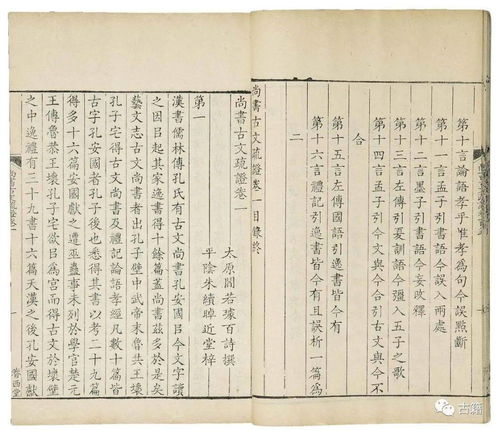 第十言論語孝乎惟孝為句今誤點斷
第十一言孟子引書語今誤入兩處
第十二言墨子引書語今妄改釋
第十三言左傳引夏訓語今彊入五子之歌
第十四言孟子引今文與今合引古文與今不
合
第十五言左傳國語引逸書皆今有
第十六言禮記引逸書皆今有且誤析一篇為
二
尚書古文疏證卷一目錄終
尚書古文疏證卷一
太原閻若璩百詩撰
平陰朱續晫近堂梓
第一
漢書儒林傳孔氏有古文尚書孔安國㠯今文字讀
之因㠯起其家逸書得十餘篇蓋尚書茲多於是矣
藝文志古文尚書者出孔子壁中武帝末魯共王壞
孔子宅得古文尚書及禮記論語孝經凡數十篇皆
古字孔安國者孔子後也悉得其書以考二十九篇
得多十六篇安國獻之遭巫蠱事未列於學官楚元
王傳魯恭王壞孔子宅欲㠯為宮而得古文於壞壁
之中逸禮有三十九書十六篇天漢之後孔安國獻
眷西堂
古籍